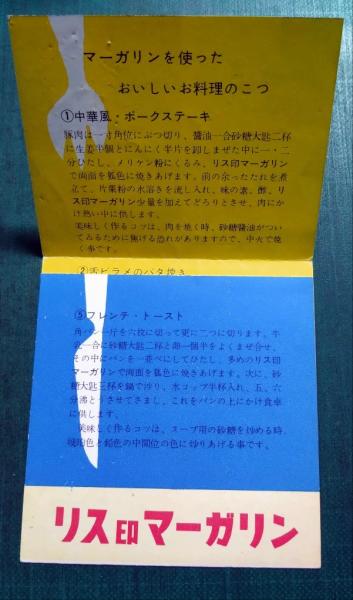 マーガリンを使った
おいしいお料理のこつ
①中華風・ポークステーキ
豚肉は一寸角位にぶつ切り、醤油一合砂糖大匙二杯
に生姜半個とにんにく半片を卸しまぜた中に一・二
分ひたし、メリケン粉にくるみ、リス印マーガリン
で両面を狐色に焼きあげます。前の余ったたれを煮
立て、片栗粉の水溶きを流し入れ、味の素、酢、リス
印マーガリン少量を加えてどろりとさせ、肉にか
け熱い中に供します。
美味しく作るコツは、肉を焼く時、砂糖醤油がつい
てゐるために焦げる恐れがありますので、中火で焼
く事です。
②舌ビラメのバタ焼き
⑤フレンチ・トースト
角パン一斤を六枚に切って更に二つに切ります。牛
乳一合に砂糖大匙二杯と卵一個半をよくまぜ合せ、
その中にパンを一並べにしてひたし、多めのリス印
マーガリンで両面を狐色に焼きあげます。次に、砂
糖大匙三杯を鍋で炒り、水コップ半杯入れ、五、六
分沸とうさせてさまし、これをパンの上にかけ食卓
に供します。
美味しく作るコツは、スープ用の砂糖を炒める時、
焼肉色と飴色の中間位の色に炒りあげる事です。
リス印マーガリン